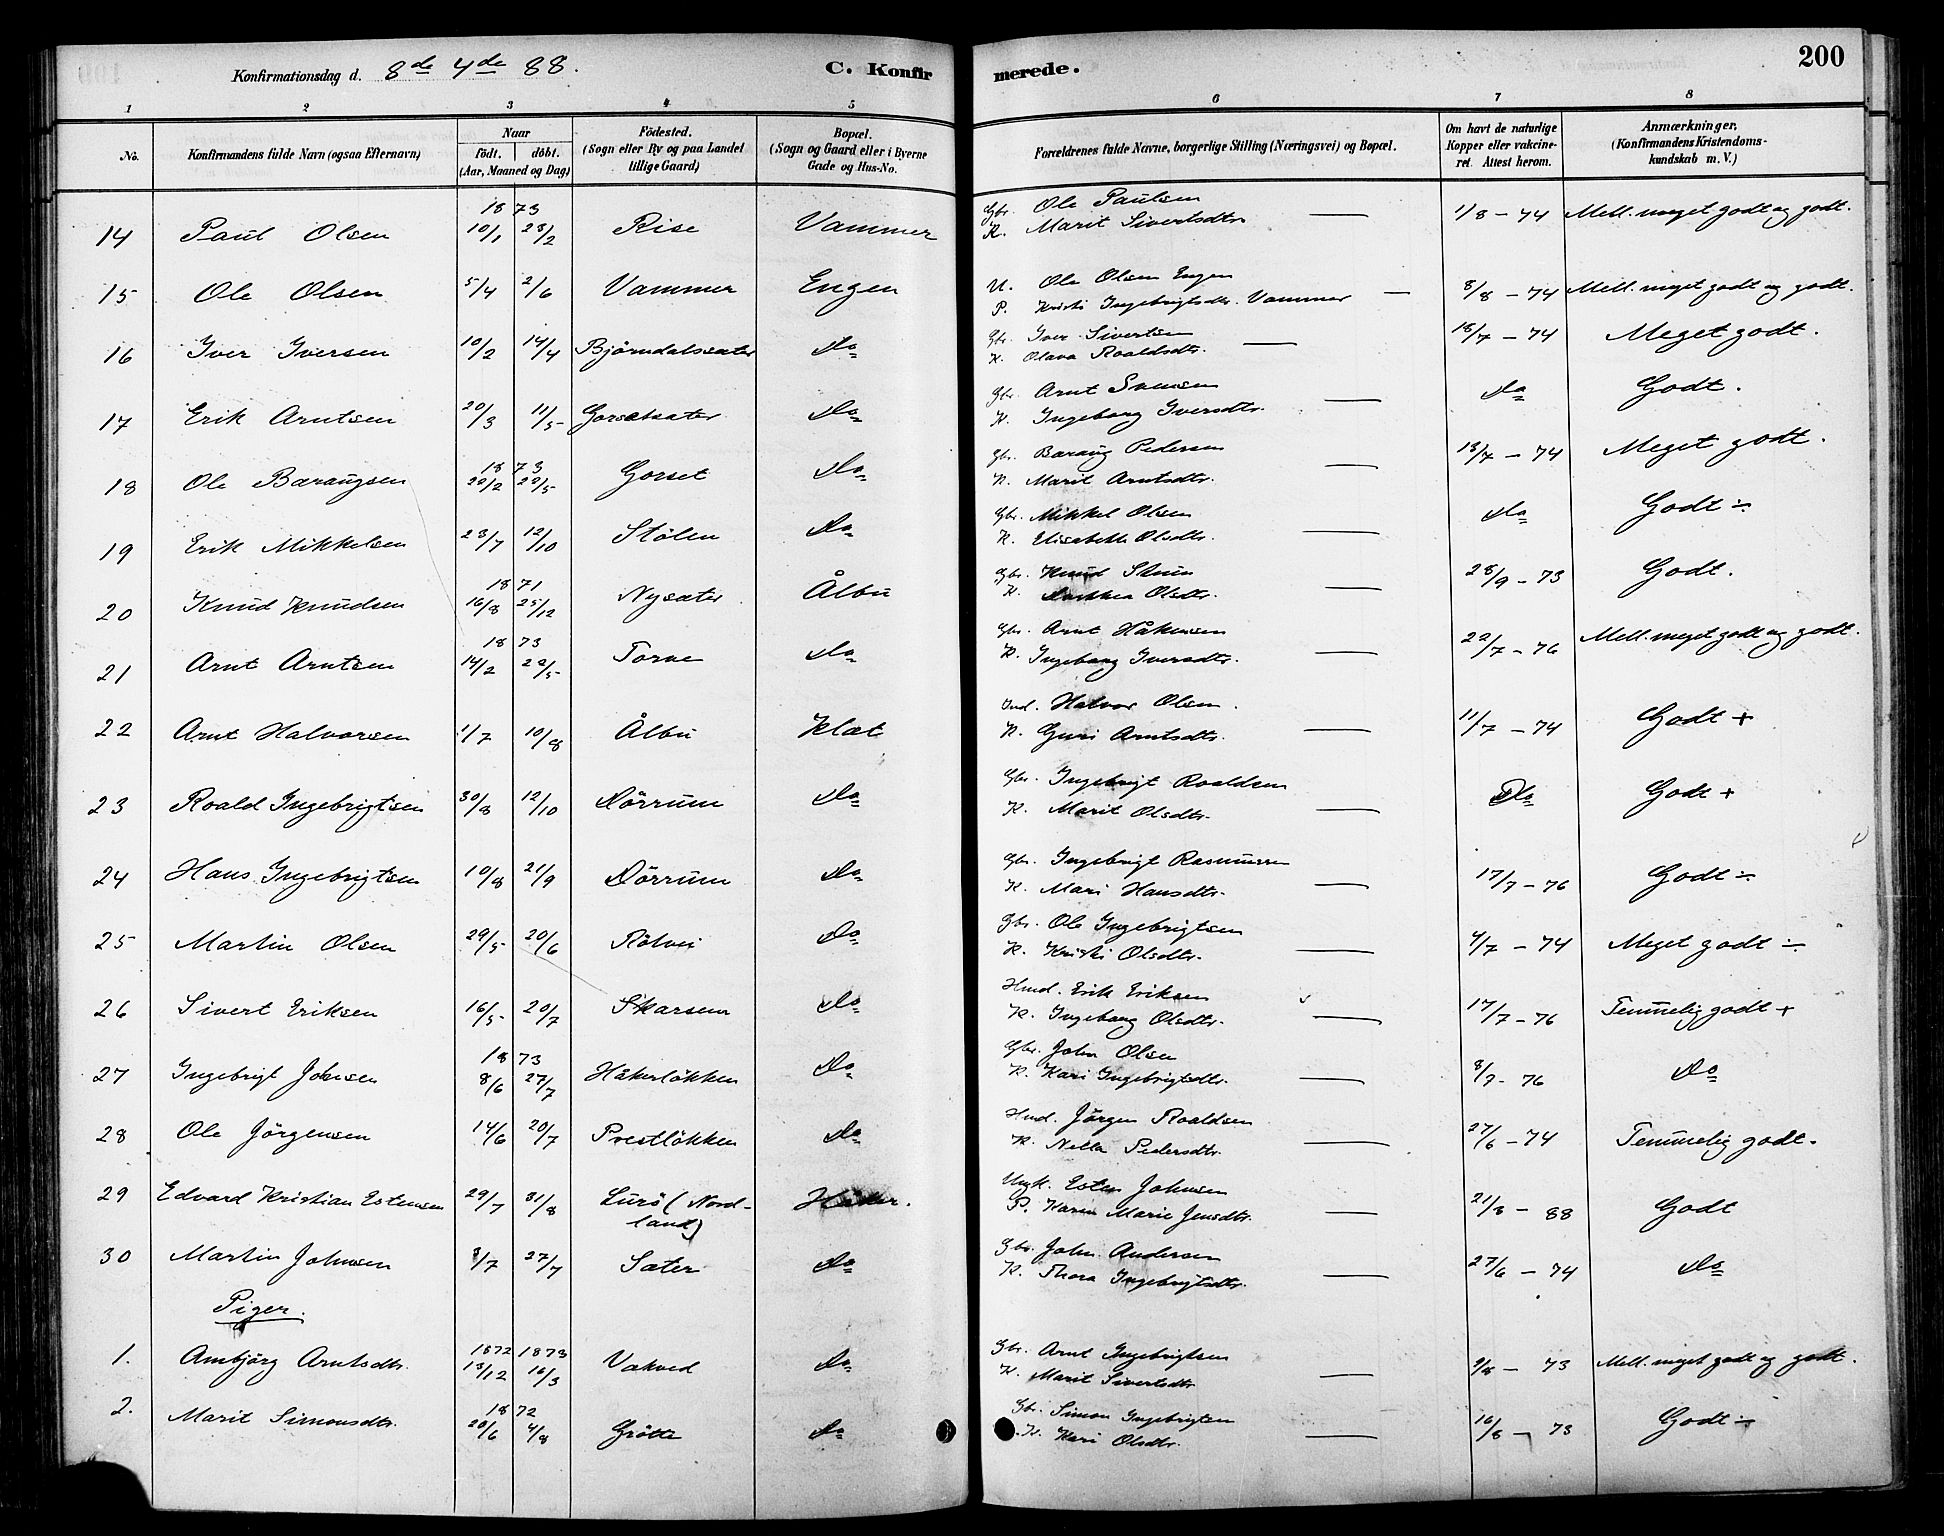 Konfirmationsdag d. 8de 4de 88. C. Konfirmerede. 200
1 2 3 4 5 6 7 8
No. | Konfirmandens fulde Navn (ogsaa Efternavn) | Naar født. døbt. (Aar, Maaned og Dag) | Fødested. (Sogn eller By og paa Landet tillige Gaard) | Bopæl. (Sogn og Gaard eller i Byerne Gade og Hus-No. | Forældrenes fulde Navne, borgerlige Stilling (Næringsvei) og Bopæl. | Om havt de naturlige Kopper eller vakcineret. Attest herom. | Anmærkninger. (Konfirmandens Kristendomskundskab m. V.)
14 Paul Olsen 1873 10/1 23/2 Rise Vammer Gbr. Ole Paulsen K. Marit Sivertsdtr. 1/8 - 74 Mell. meget godt og godt.
15 Ole Olsen 5/4 2/6 Vammer Engen U. Ole Olsen Engen P. Kristi Ingebrigtsdtr. Vammer 8/8 - 74 Mell. meget godt og godt.
16 Iver Iversen 10/2 14/4 Björndalssæter Do Gbr. Iver Sivertsen K. Olava Roaldsdtr. 18/7 - 74 Meget godt.
17 Erik Arntsen 20/3 11/5 Gorsetsæter Do Gbr. Arnt Svensen K. Ingeborg Iversdtr. Do Godt.
18 Ole Baraugsen 1873 20/2 20/5 Gorset Do Gbr. Baraug Pedersen K. Marit Arntsdtr. 18/7 - 74 Meget godt.
19 Erik Mikkelsen 23/7 12/10 Stölen Do Gbr. Mikkel Olsen K. Elisabeth Olsdtr. Do Godt ÷
20 Knud Knudsen 1871 16/8 25/12 Nysæter Ålbu Gbr. Knud K. Dorthea Olsdtr. 28/9 - 73 Godt.
21 Arnt Arntsen 1873 14/2 22/5 Torve Do Gbr. Arnt Håkensen K. Ingeborg Iversdtr. 22/7 - 76 Mell. meget godt og godt.
22 Arnt Halvorsen 1/7 10/8 Ålbu Klæt Ind. Halvor Olsen. K. Guri Arntsdtr. 11/7 - 74 Godt +
23 Roald Ingebrigtsen 30/8 12/10 Dörrum Do Gbr. Ingebrigt Roaldsen K. Marit Olsdtr. Do Godt +
24 Hans Ingebrigtsen 10/8 21/9 Dörrum Do Gbr. Ingebrigt Rasmussen K. Mari Hansdtr. 17/7 - 76 Godt ÷
25 Martin Olsen 29/5 20/6 Rötvei Do Gbr. Ole Ingebrigtsen K. Kristi Olsdtr. 4/7 - 74 Meget godt ÷
26 Sivert Eriksen 16/5 20/7 Skarsem Do Hmd. Erik Eriksen K. Ingeborg Olsdtr. 17/7 - 76 Temmelig godt +
27 Ingebrigt Johnsen 1873 8/6 27/7 Håkerlökken Do Gbr. John Olsen K. Kari Ingebrigtsdtr. 8/7 - 76 Do
28 Ole Jörgensen 14/6 20/7 Prestlökken Do Hmd. Jörgen Roaldsen K. Nella Pedersdtr. 27/6 - 74 Temmelig godt.
29 Edvard Kristian Estensen 29/7 31/8 Lurö (Nordland) Håker. Ungk. Esten Johnsen P. Karen Marie Jensdtr. 21/3 - 88 Godt
30 Martin Johnsen 3/7 27/7 Sæter Do Gbr. John Andersen K. Thora Ingebrigtsdtr. 27/6 - 74 Do
Piger.
1. Ambjörg Arntsdtr. 1872 1873 13/12 16/3 Vakved Do Gbr. Arnt Ingebrigtsen K. Marit Sivertsdtr. 9/8 - 73 Mell. meget godt og godt.
2. Marit Simonsdtr. 1872 20/6 4/8 Grötte Do Gbr. Simon Ingebrigtsen K. Kari Olsdtr. 16/8 - 73 Godt ÷